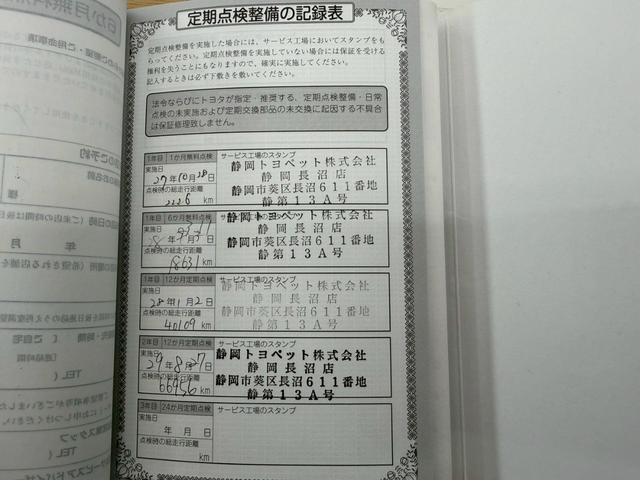 定期点検整備の記録表
定期点検整備を実施した場合には、サービス工場においてスタンプをも
らってください。定期点検整備を実施していない場合には保証を受ける
権利を失うことにもなりますので、確実に実施してください。
記入するときは必ず下敷きを敷いてください。
法令ならびにトヨタが指定・推奨する、定期点検整備・日常
点検の未実施および定期交換部品の未交換に起因する不具合
は保証修理致しません。
1年目 1か月無料点検 サービス工場のスタンプ
実施日
27年10月28日
点検時の総走行距離
2226 km
静岡トヨペット株式会社
静岡長沼店
静岡市葵区長沼611番地
静第13A号
1年目 6か月無料点検
実施日
点検時の総走行距離
18631 km
静岡トヨペット株式会社
静岡長沼店
静岡市葵区長沼611番地
静第13A号
1年目 12か月定期点検 サービス工場のスタンプ
実施日
点検時の総走行距離
40109 km
静岡トヨペット株式会社
静岡長沼店
静岡市葵区長沼611番地
静第13A号
2年目 12か月定期点検 サービス工場のスタンプ
実施日
29年8月27日
点検時の総走行距離
66956 km
静岡トヨペット株式会社
静岡長沼店
静岡市葵区長沼611番地
静第13A号
3年目 24か月定期点検 サービス工場のスタンプ
実施日
年 月 日
点検時の総走行距離
km